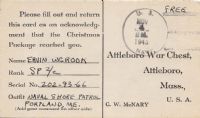 Please fill out and return
this card as an acknowledg-
ment that the Christmas
Package reached you.
Name ERVIN WGROOM
Rank SP 3/c
Serial No. 202-93-66
Outfit NAVAL SHORE PATROL
PORTLAND, ME.
FREE
U. S.
NOV
1943
NAVY
Attleboro War Chest,
Attleboro,
Mass.,
U. S. A.
C. W. McNARY